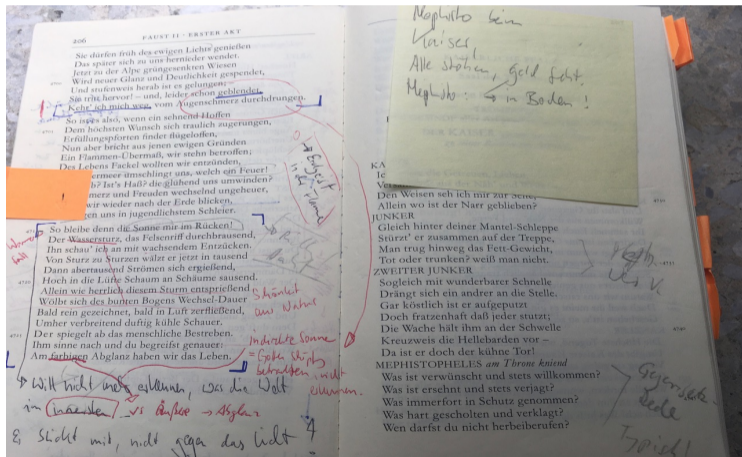 206
FAUST II · ERSTER AKT
Sie dürfen früh des ewigen Lichts genießen
Das später sich zu uns hernieder wendet.
Jetzt zu der Alpe grüngesenkten Wiesen
Wird neuer Glanz und Deutlichkeit gespendet,
Und stufenweis herab ist es gelungen; –
Sie tritt hervor! – und, leider schon geblendet,
Kehr' ich mich weg, vom Augenschmerz durchdrungen.
So ist es also, wenn ein sehnend Hoffen
Dem höchsten Wunsch sich traulich zugerungen,
Erfüllungspforten findet flügeloffen,
Nun aber bricht aus jenen ewigen Gründen
Ein Flammen-Übermaß, wir stehn betroffen;
Des Lebens Fackel wollten wir entzünden,
ermeer umschlingt uns, welch ein Feuer!
b? Ist's Haß? die glühend uns umwinden?
merz und Freuden wechselnd ungeheuer,
wir wieder nach der Erde blicken,
gen uns in jugendlichstem Schleier.
So bleibe denn die Sonne mir im Rücken!
Der Wassersturz, das Felsenriff durchbrausend,
Ihn schau' ich an mit wachsendem Entzücken.
Von Sturz zu Sturzen wälzt er jetzt in tausend
Dann abertausend Strömen sich ergießend,
Hoch in die Lüfte Schaum an Schäume sausend.
Allein wie herrlich diesem Sturm entsprießend
Wölbt sich des bunten Bogens Wechsel-Dauer
Bald rein gezeichnet, bald in Luft zerfließend,
Umher verbreitend duftig kühle Schauer.
Der spiegelt ab das menschliche Bestreben.
Ihm sinne nach und du begreifst genauer:
Am farbigen Abglanz haben wir das Leben.
Schönheit
aus Natur
indirekte Sonne
= Gottes Schöpfg
betrachten, nicht
erkennen.
→ Will nicht mehr erkennen, was die Welt
im innersten vs Äußere → Abglanz
& Blickt mit, nicht gegen das Licht
Mephisto beim
Kaiser,
Alle stehlen, Geld fehlt.
Mephisto: → in Boden!
KA
Den Weisen seh ich mir zur Seite
Allein wo ist der Narr geblieben?
JUNKER
Gleich hinter deiner Mantel-Schleppe
Stürzt' er zusammen auf der Treppe,
Man trug hinweg das Fett-Gewicht,
Tot oder trunken? weiß man nicht.
ZWEITER JUNKER
Sogleich mit wunderbarer Schnelle
Drängt sich ein andrer an die Stelle.
Gar köstlich ist er aufgeputzt
Doch fratzenhaft daß jeder stutzt;
Die Wache hält ihm an der Schwelle
Kreuzweis die Hellebarden vor –
Da ist er doch der kühne Tor!
MEPHISTOPHELES am Throns kniend
Was ist verwünscht und stets willkommen?
Was ist ersehnt und stets verjagt?
Was immerfort in Schutz genommen?
Was hart gescholten und verklagt?
Wen darfst du nicht herbeiberufen?
Gegensatz-
Rede
Typisch!